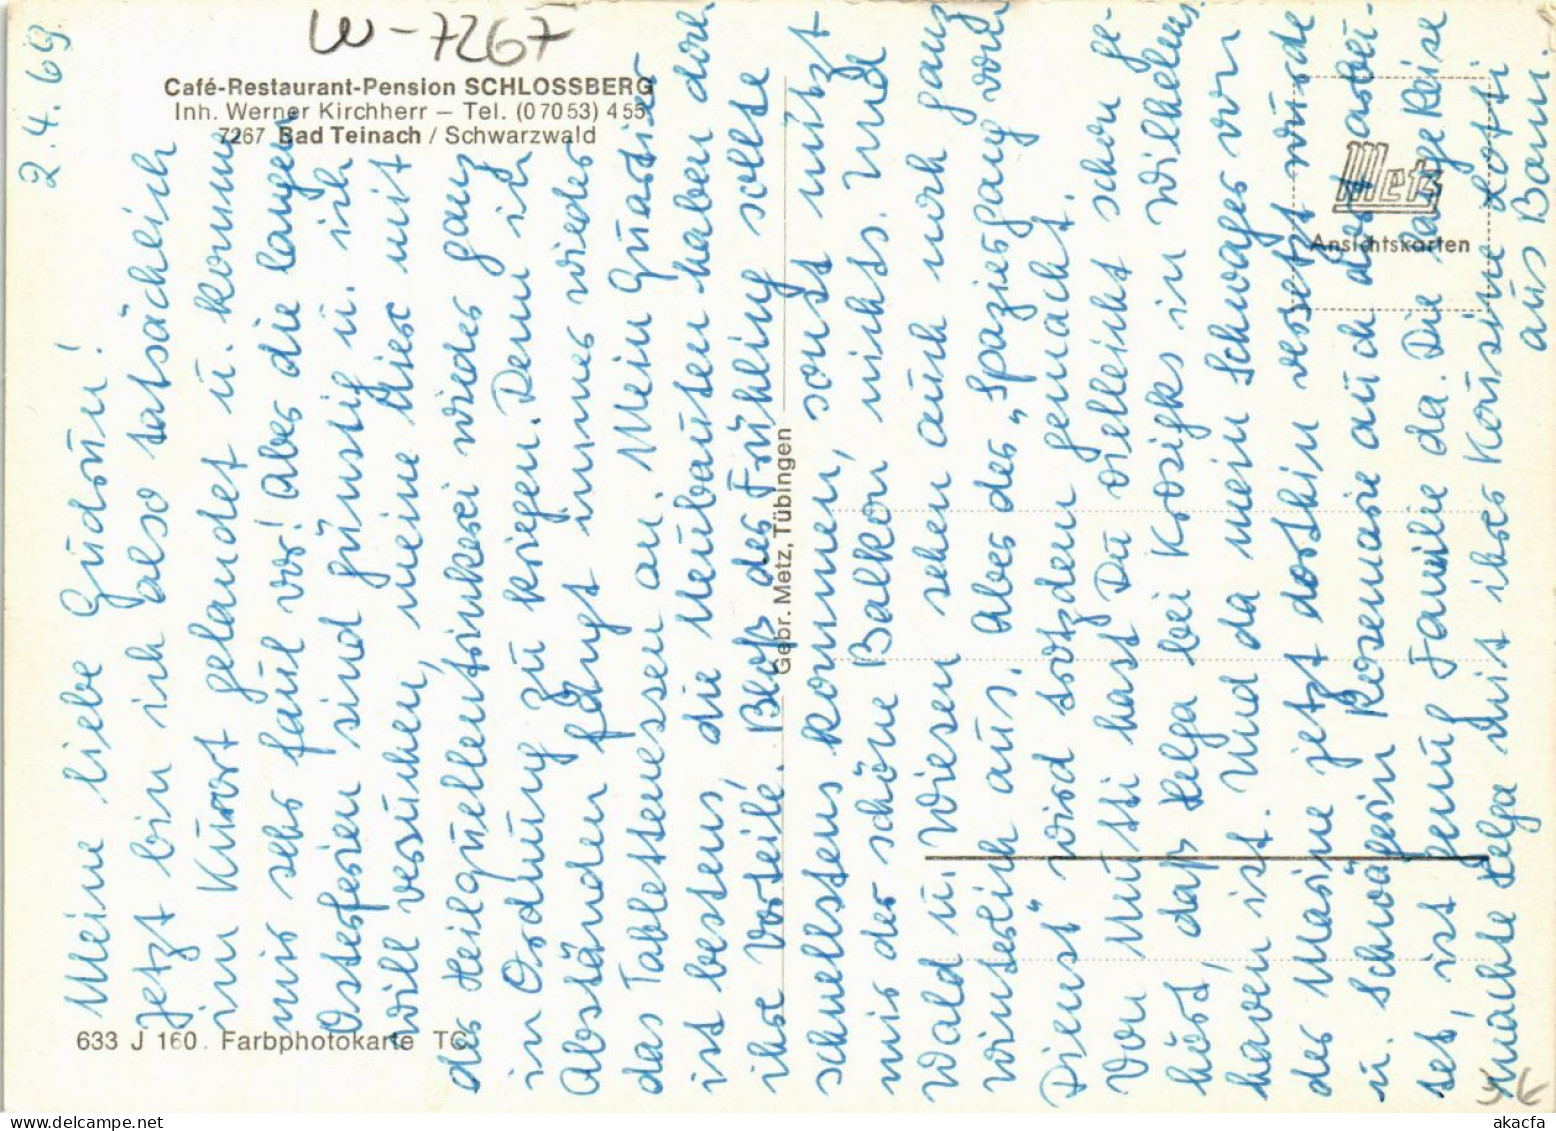 W-7267
Café-Restaurant-Pension SCHLOSSBERG
Inh. Werner Kirchherr – Tel. (07053) 455
7267 Bad Teinach / Schwarzwald
2.4.69.
Meine liebe Gudrun!
Jetzt bin ich also tatsächlich
im Kurort gelandet u. komme
mir sehr faul vor! Aber die langen
Osterferien sind günstig u. ich
will versuchen, meine Niere mit
der Heilquellentrinkerei wieder ganz
in Ordnung zu kriegen. Denn in
Abständen fängt immer wieder
das Tablettenessen an. Mein Quartier
ist bestens, die Neubauten haben doch
ihre Vorteile. Bloß der Frühling sollte
schnellstens kommen, sonst nützt
mir der schöne Balkon nichts. Und
Wald u. Wiesen sehen auch noch ganz
winterlich aus. Aber der „Spaziergang vor
Dienst" wird trotzdem gemacht.
Von Mutti hast Du vielleicht schon ge-
hört, daß Helga bei Krosigks in Wilhelms-
haven ist. Und da mein Schwager von
der Marine jetzt dorthin versetzt wurde
u. Schwägerin Rosemarie auch dort arbei-
tet, ist genug Familie da. Die lange Reise
machte Helga mit ihrer Kousine Lotti
aus Bonn.
Metz
Ansichtskarten
Gebr. Metz, Tübingen
633 J 160. Farbphotokarte TC
3€
www.delcampe.net
akacfa